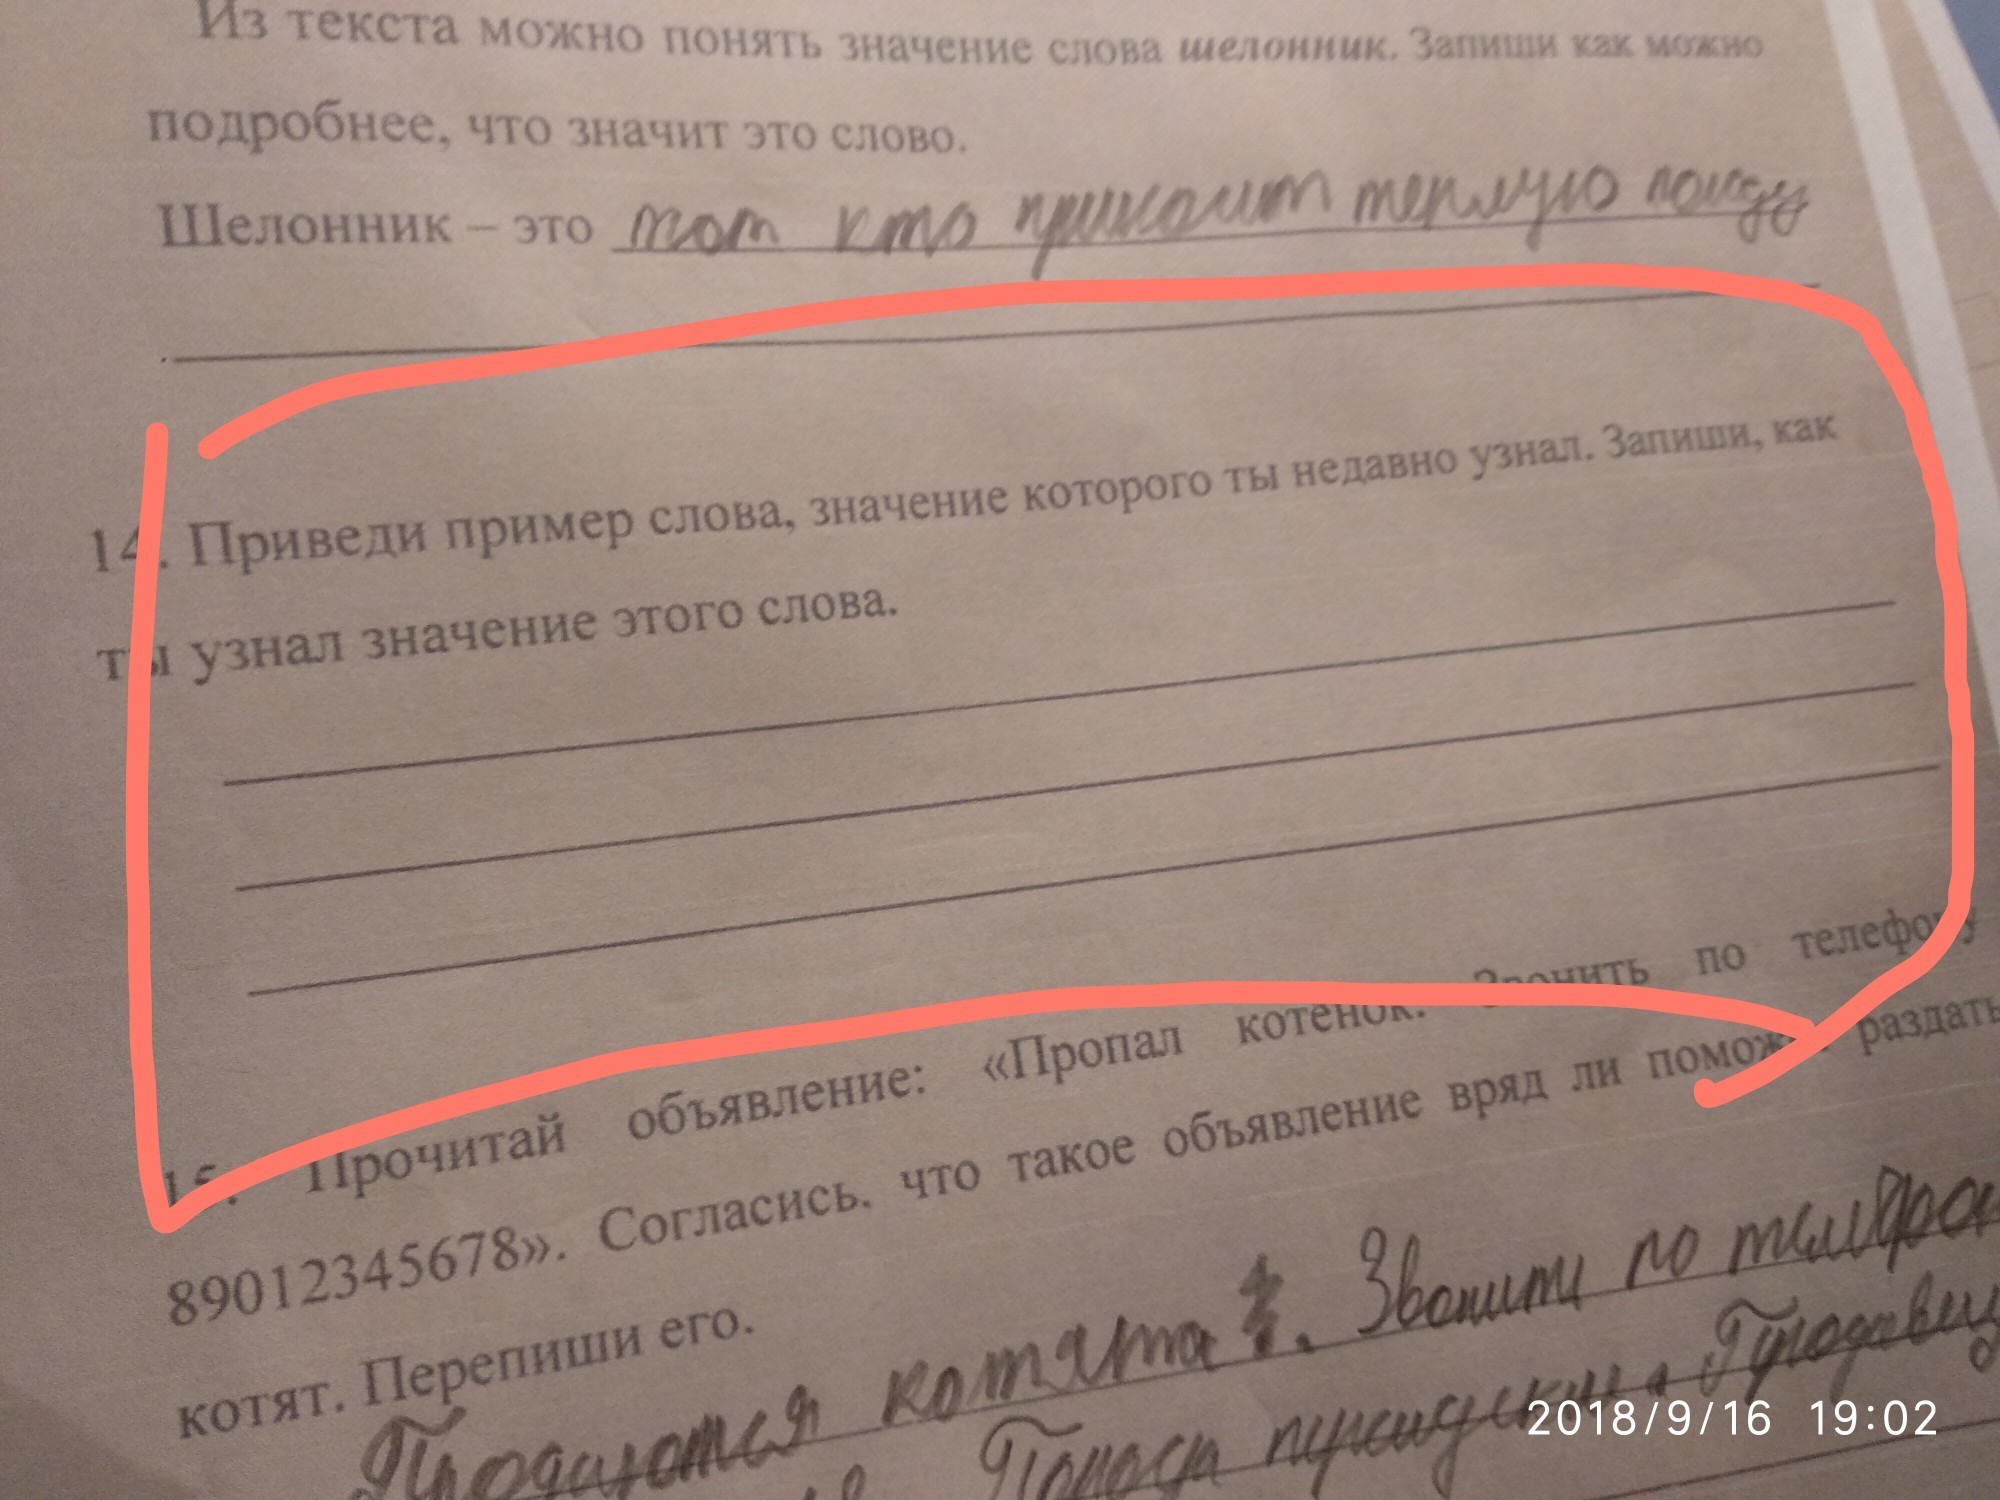 Из текста можно понять значение слова шелонник. Запиши как можно
подробнее, что значит это слово.
Шелонник – это тот кто приносит теплую погоду
14. Приведи пример слова, значение которого ты недавно узнал. Запиши, как
ты узнал значение этого слова.
15. Прочитай объявление: «Пропал котёнок. Звонить по телефону
89012345678». Согласись, что такое объявление вряд ли поможет раздать
котят. Перепиши его.
Продаются котята. Звонити по
2018/9/16 19:02